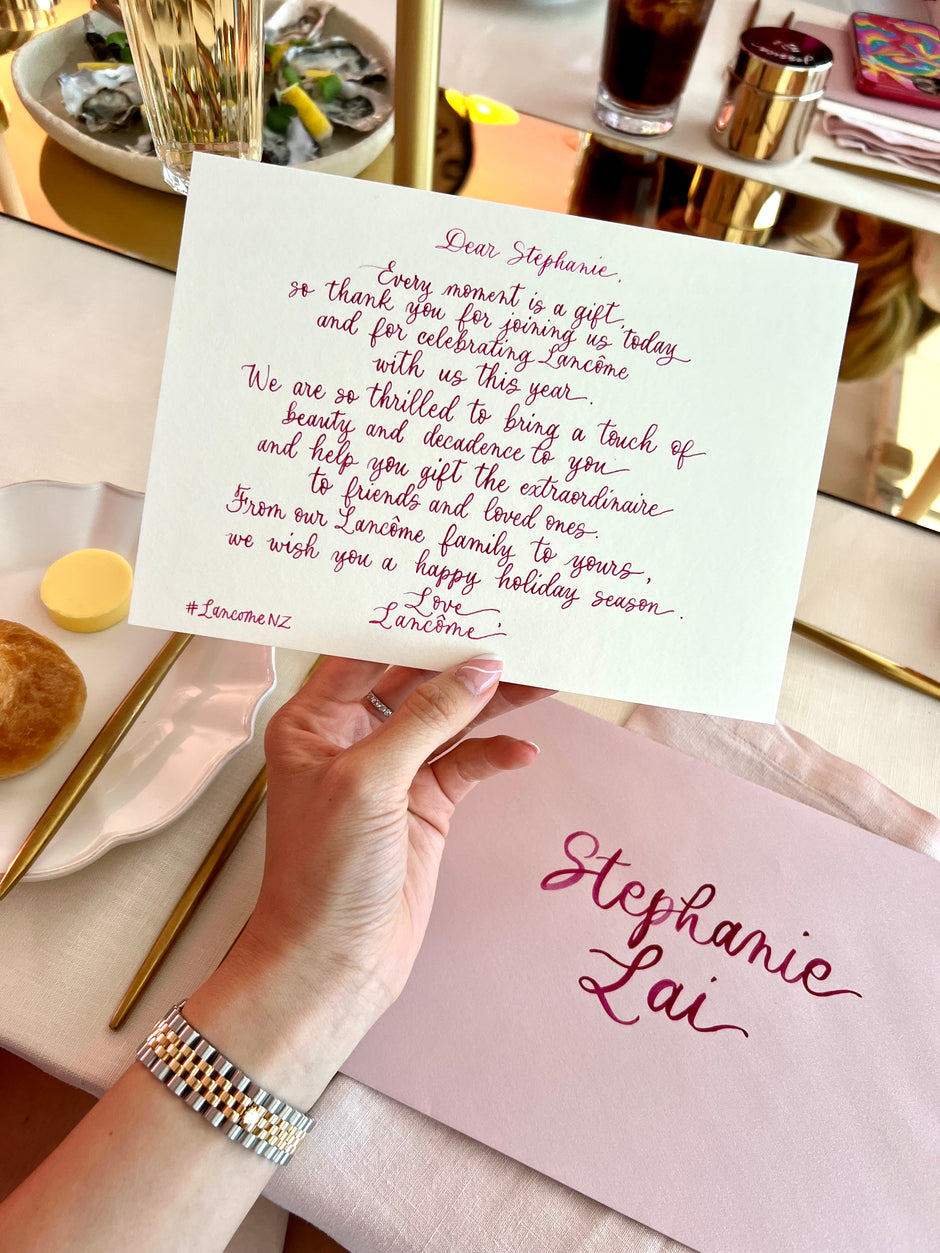 Dear Stephanie,
Every moment is a gift,
so thank you for joining us today
and for celebrating Lancôme
with us this year.
We are so thrilled to bring a touch of
beauty and decadence to you
and help you gift the extraordinaire
to friends and loved ones.
From our Lancôme family to yours,
we wish you a happy holiday season.
Love,
Lancôme
#LancomeNZ
Stephanie
Lai